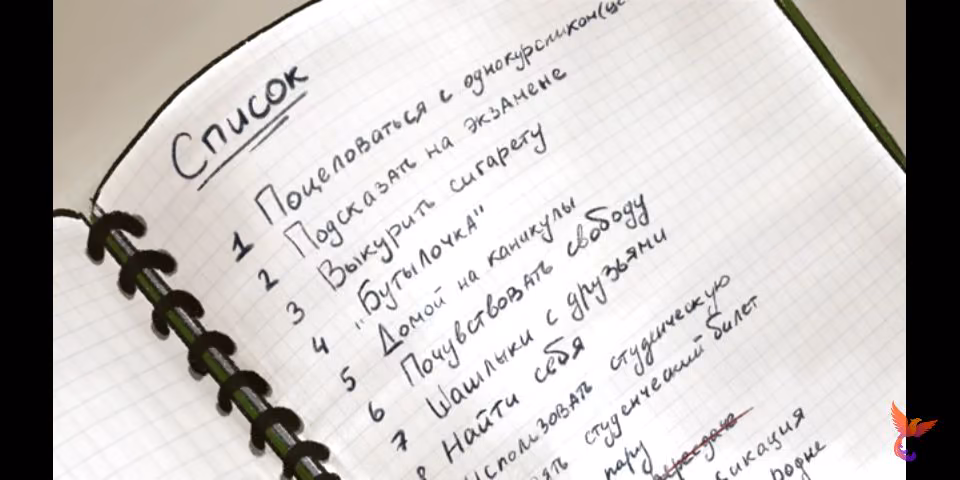 Список
1 Поцеловаться с однокурсником(це
2 Подсказать на экзамене
3 Выкурить сигарету
4 "Бутылочка"
5 Домой на каникулы
6 Почувствовать свободу
7 Шашлыки с друзьями
8 Найти себя
Использовать студенческую
студенческий билет
пару
родне